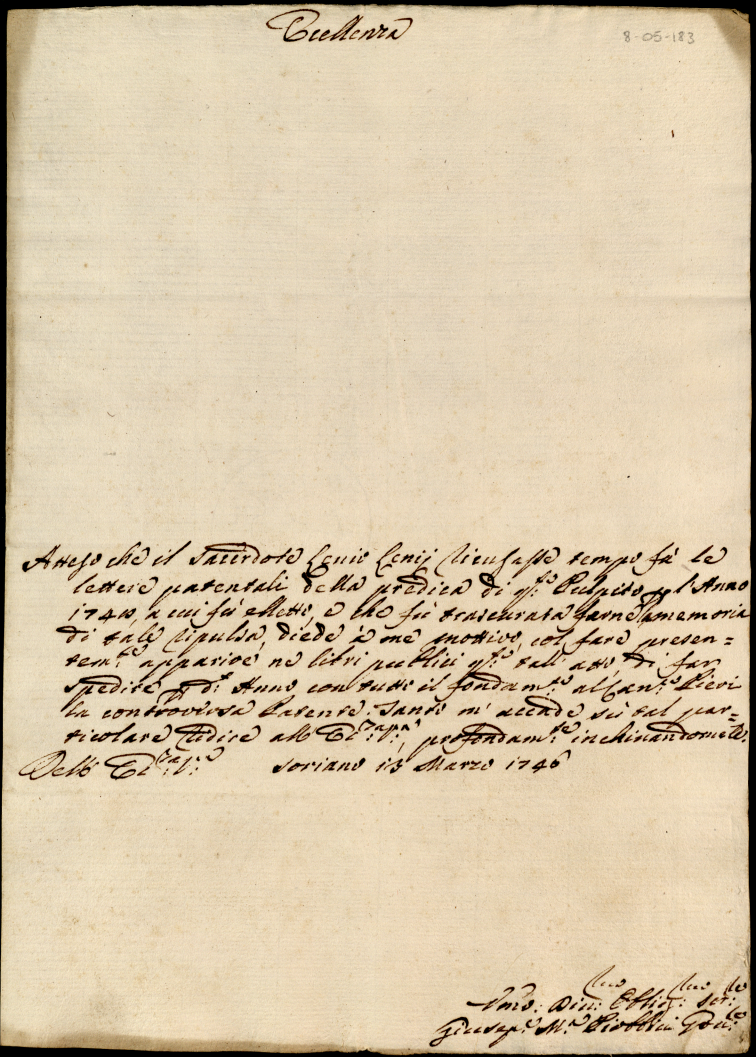 Eccellenza
8-05-183
Atteso che il Sacerdote Cenio Cenij ricusasse tempo fà le
lettere patentali della predica di q.sto Pulpito p l'Anno
a cui fù eletto, e che fù trascurata farne memoria
di tale ripulsa, diede à me mottivo, col fare presen=
tem.te apparire ne libri publici q.sto tall' atto di far
spedire p d.o Anno con tutto il fondam.to al Can.co Pieri
la controversa Patente. Tanto m' accade sù tal par=
ticolare ridire all' Ecc.za V.ra, profondam.te inchinandomele
Dell' Ecc.za V.ra Soriano 13 Marzo 1746
Umo: Obblig.mo
Giusep.e M.a Gov.re